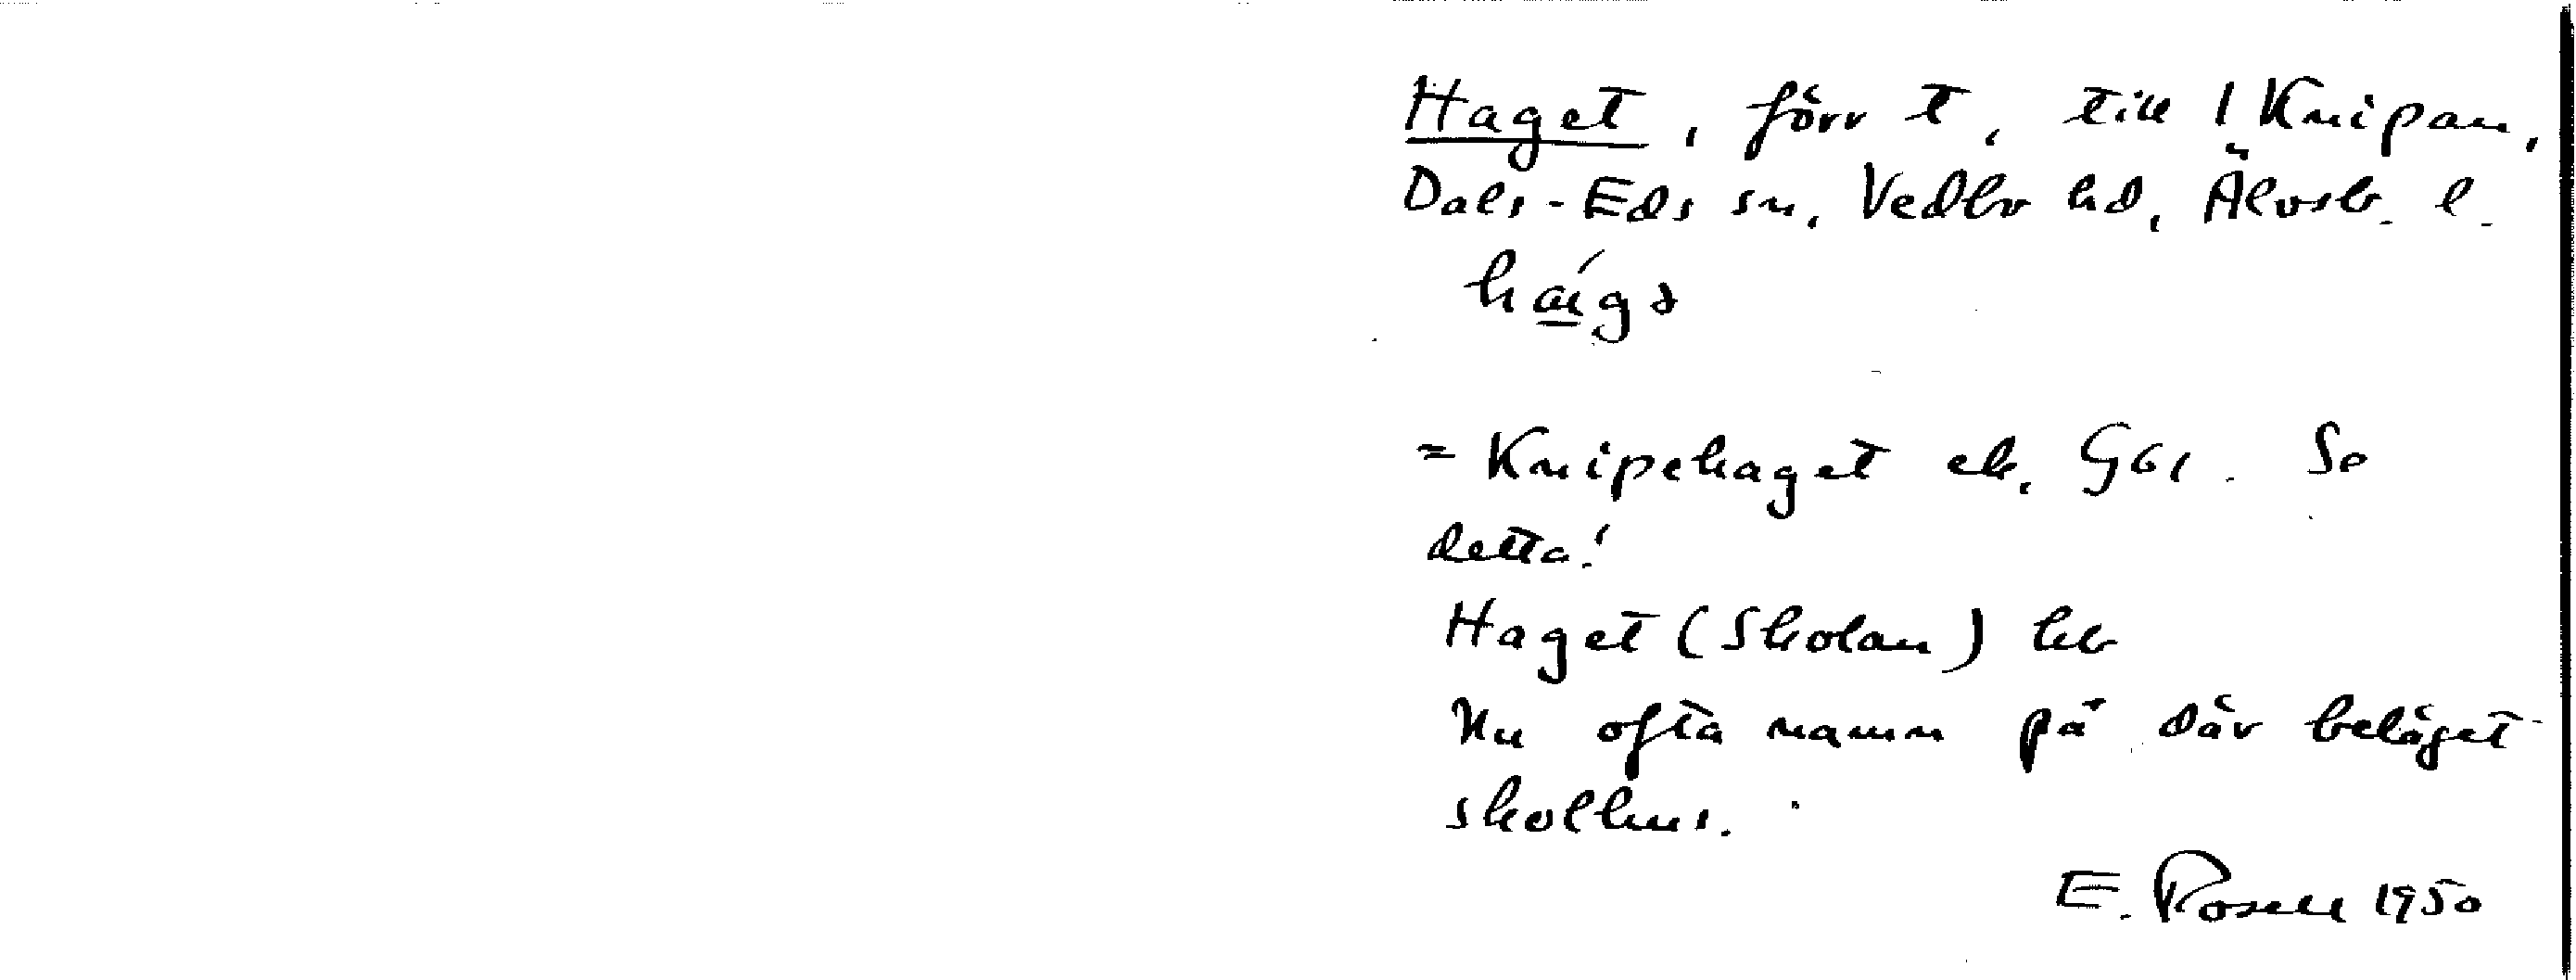 Haget, förr t, till 1 Knipan,
Dals-Eds sn, Vedbo hd, Älvsb. l.
= Knipehaget ek, G61. Se
detta!
Haget (Skolan)
Nu ofta namn på där beläget
skolhus.
E. Rosell 1950